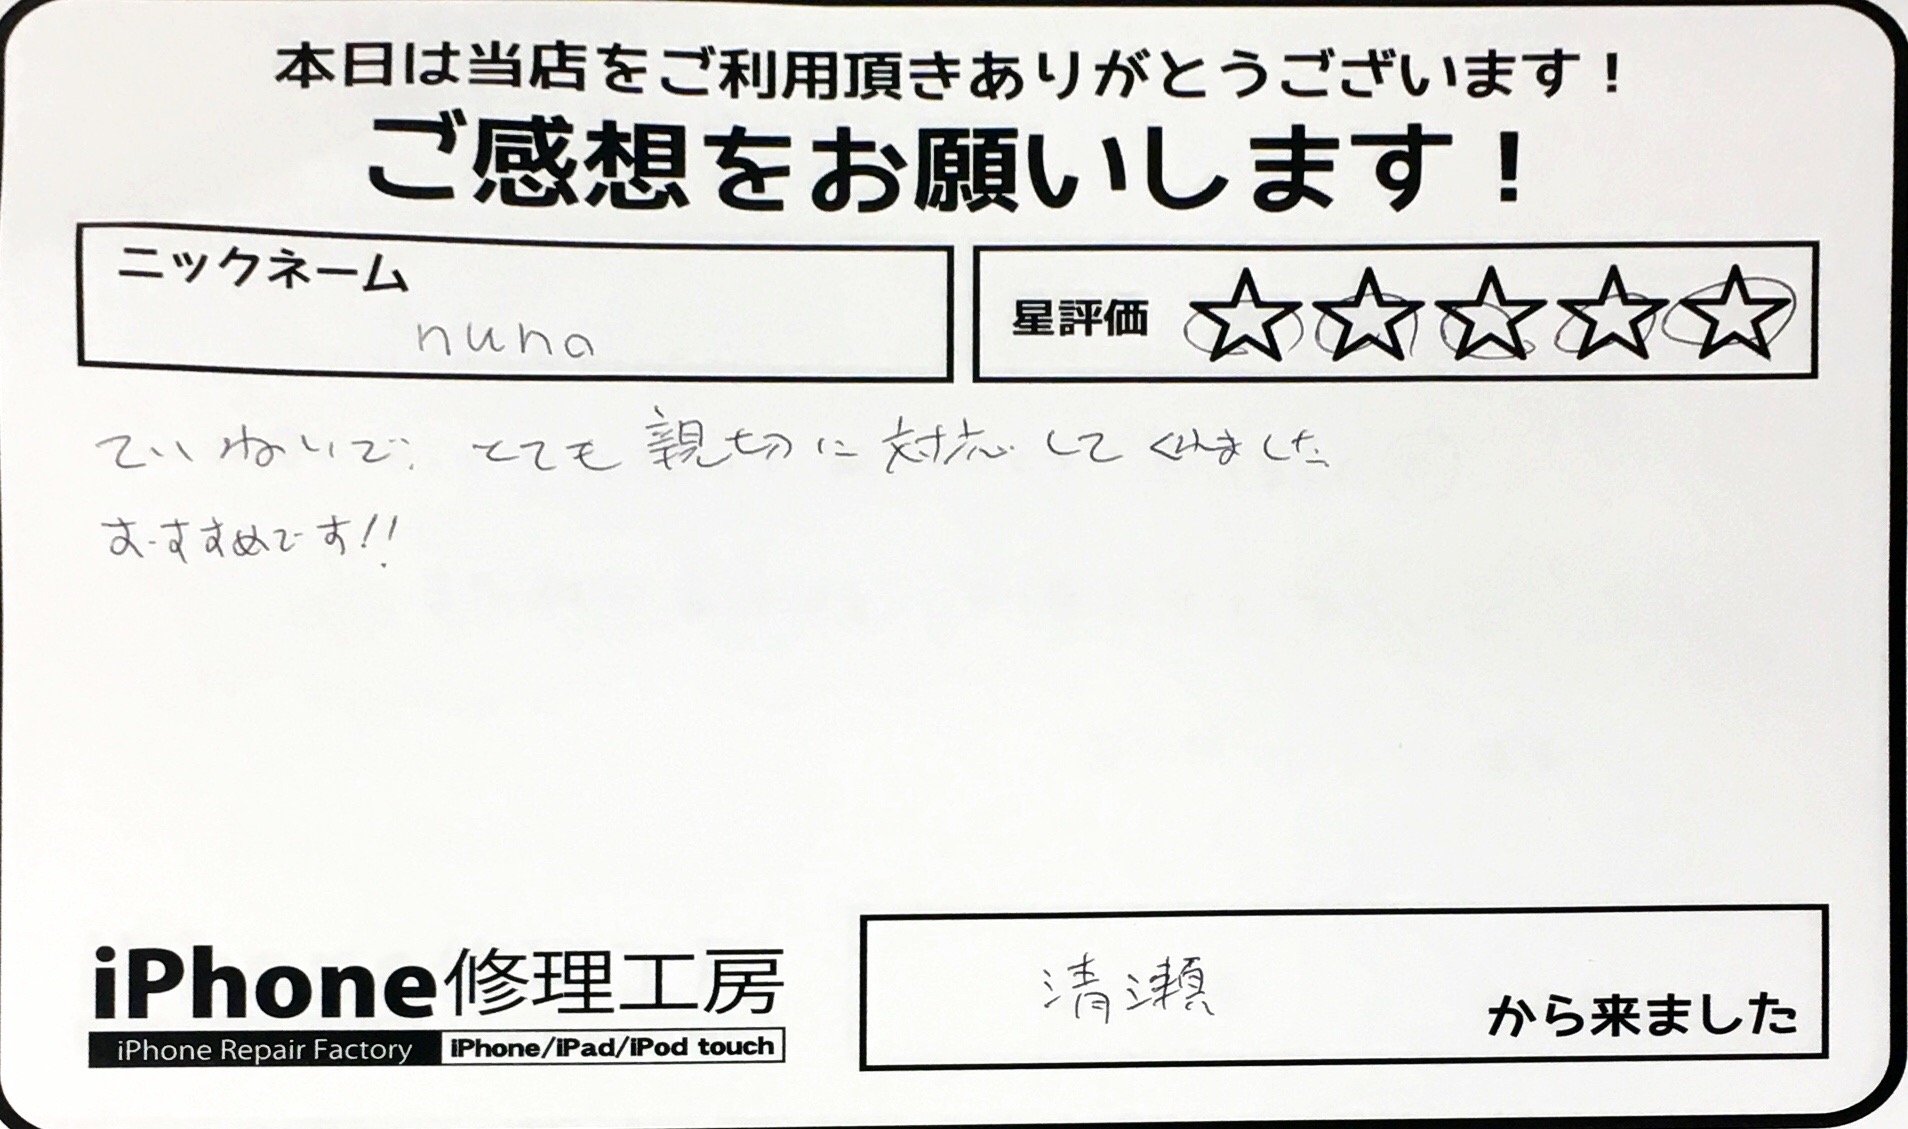 本日は当店をご利用頂きありがとうございます！
ご感想をお願いします！
ニックネーム
nuna
星評価 ☆☆☆☆☆
ていねいで、とても親切に対応してくれました
おすすめです!!
iPhone修理工房
iPhone Repair Factory iPhone/iPad/iPod touch
清瀬 から来ました